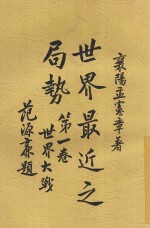 襄陽孟憲章著
世界最近之
局勢
第一卷
世界大戰
范源廉題